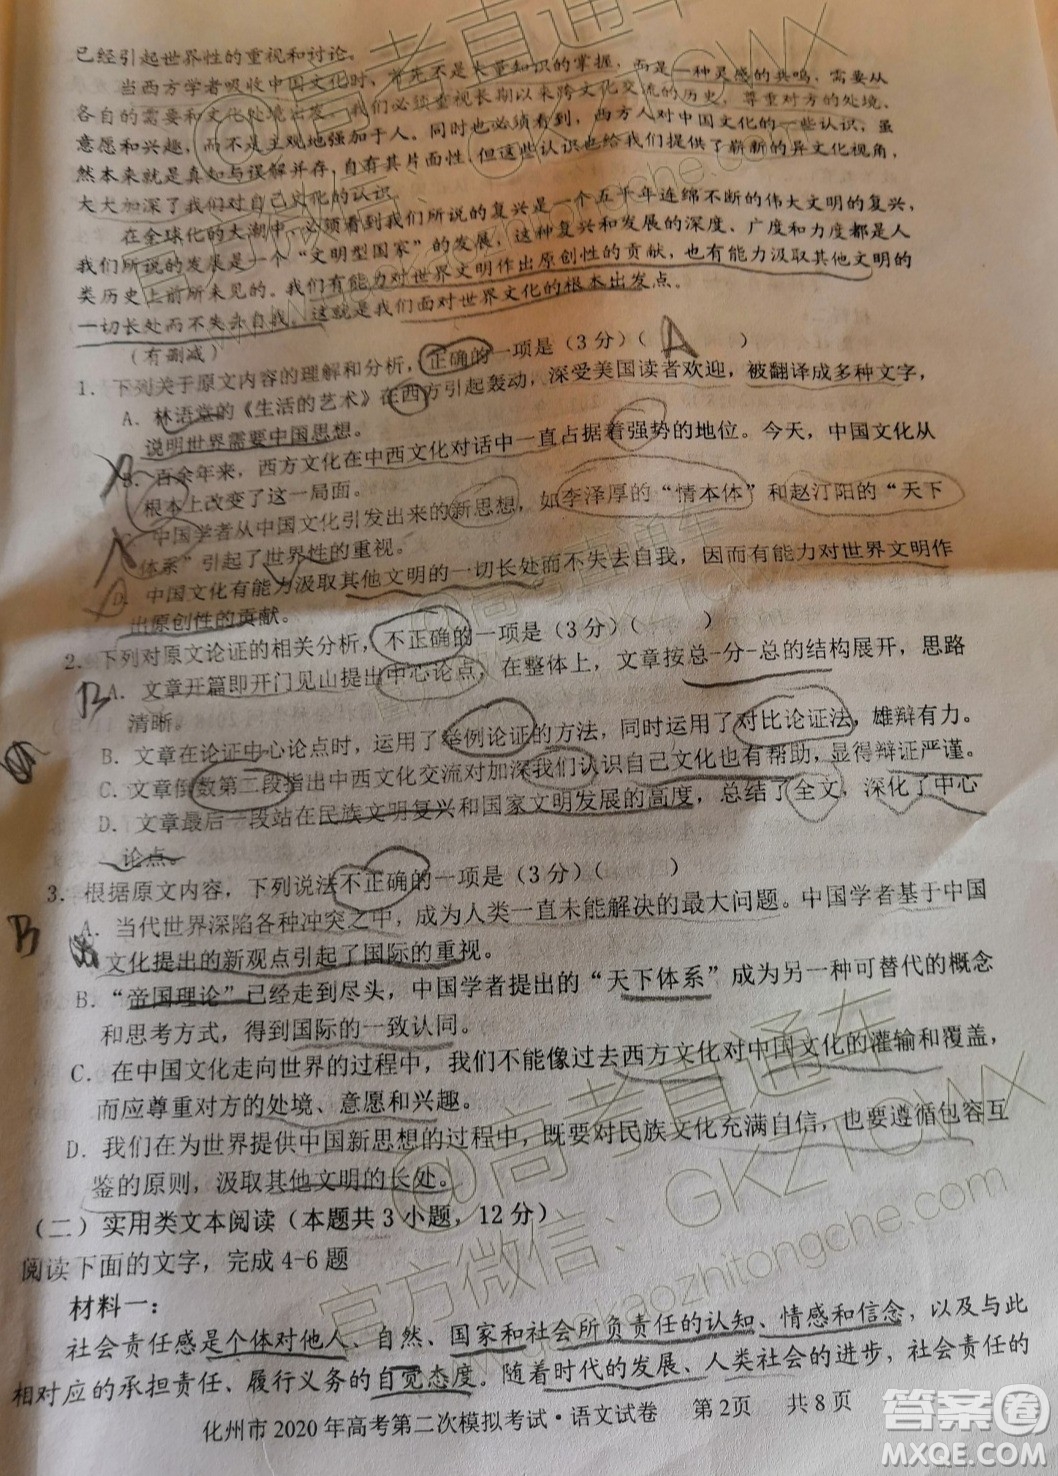 已经引起世界性的重视和讨论。
当西方学者吸收中国文化时，常常不是大量知识的掌握，而是一种灵感的共鸣，需要从
各自的需要和文化处境出发。我们必须查视长期以来跨文化交流的历史，尊重对方的处境、
意愿和兴趣，而不是主观地强加于人。同时也必须看到，西方人对中国文化的一些认识，虽
然本来就是真知与误解并存，自有其片面性，但这些认识也给我们提供了崭新的异文化视角，
大大加深了我们对自己文化的认识。
在全球化的大潮中，必须看到我们所说的复兴是一个五千年连绵不断的伟大文明的复兴，
我们所说的发展是一个“文明型国家”的发展，这种复兴和发展的深度、广度和力度都是人
类历史上前所未见的。我们有能力对世界文明作出原创性的贡献，也有能力汲取其他文明的
一切长处而不失去自我。这就是我们面对世界文化的根本出发点。
（有删减）
1．下列关于原文内容的理解和分析，正确的一项是（3分）（ A ）
A．林语堂的《生活的艺术》在西方引起轰动，深受美国读者欢迎，被翻译成多种文字，
说明世界需要中国思想。
B．百余年来，西方文化在中西文化对话中一直占据着强势的地位。今天，中国文化从
根本上改变了这一局面。
C．中国学者从中国文化引发出来的新思想，如李泽厚的“情本体”和赵汀阳的“天下
体系”引起了世界性的重视。
D．中国文化有能力汲取其他文明的一切长处而不失去自我，因而有能力对世界文明作
出原创性的贡献。
2．下列对原文论证的相关分析，不正确的一项是（3分）（ ）
B
A．文章开篇即开门见山提出中心论点，在整体上，文章按总-分-总的结构展开，思路
清晰。
B．文章在论证中心论点时，运用了举例论证的方法，同时运用了对比论证法，雄辩有力。
C．文章倒数第二段指出中西文化交流对加深我们认识自己文化也有帮助，显得辩证严谨。
D．文章最后一段站在民族文明复兴和国家文明发展的高度，总结了全文，深化了中心
论点。
3．根据原文内容，下列说法不正确的一项是（3分）（ ）
B
A．当代世界深陷各种冲突之中，成为人类一直未能解决的最大问题。中国学者基于中国
文化提出的新观点引起了国际的重视。
B．“帝国理论”已经走到尽头，中国学者提出的“天下体系”成为另一种可替代的概念
和思考方式，得到国际的一致认同。
C．在中国文化走向世界的过程中，我们不能像过去西方文化对中国文化的灌输和覆盖，
而应尊重对方的处境、意愿和兴趣。
D．我们在为世界提供中国新思想的过程中，既要对民族文化充满自信，也要遵循包容互
鉴的原则，汲取其他文明的长处。
（二）实用类文本阅读（本题共3小题，12分）
阅读下面的文字，完成4-6题
材料一：
社会责任感是个体对他人、自然、国家和社会所负责任的认知、情感和信念，以及与此
相对应的承担责任、履行义务的自觉态度。随着时代的发展、人类社会的进步，社会责任的
化州市2020年高考第二次模拟考试·语文试卷 第2页 共8页
@高考直通车
GKZTCWX
@高考直通车
GKZTCWX
官方微信：
www.gaozhitongche.com
答案圈
MXQE.COM